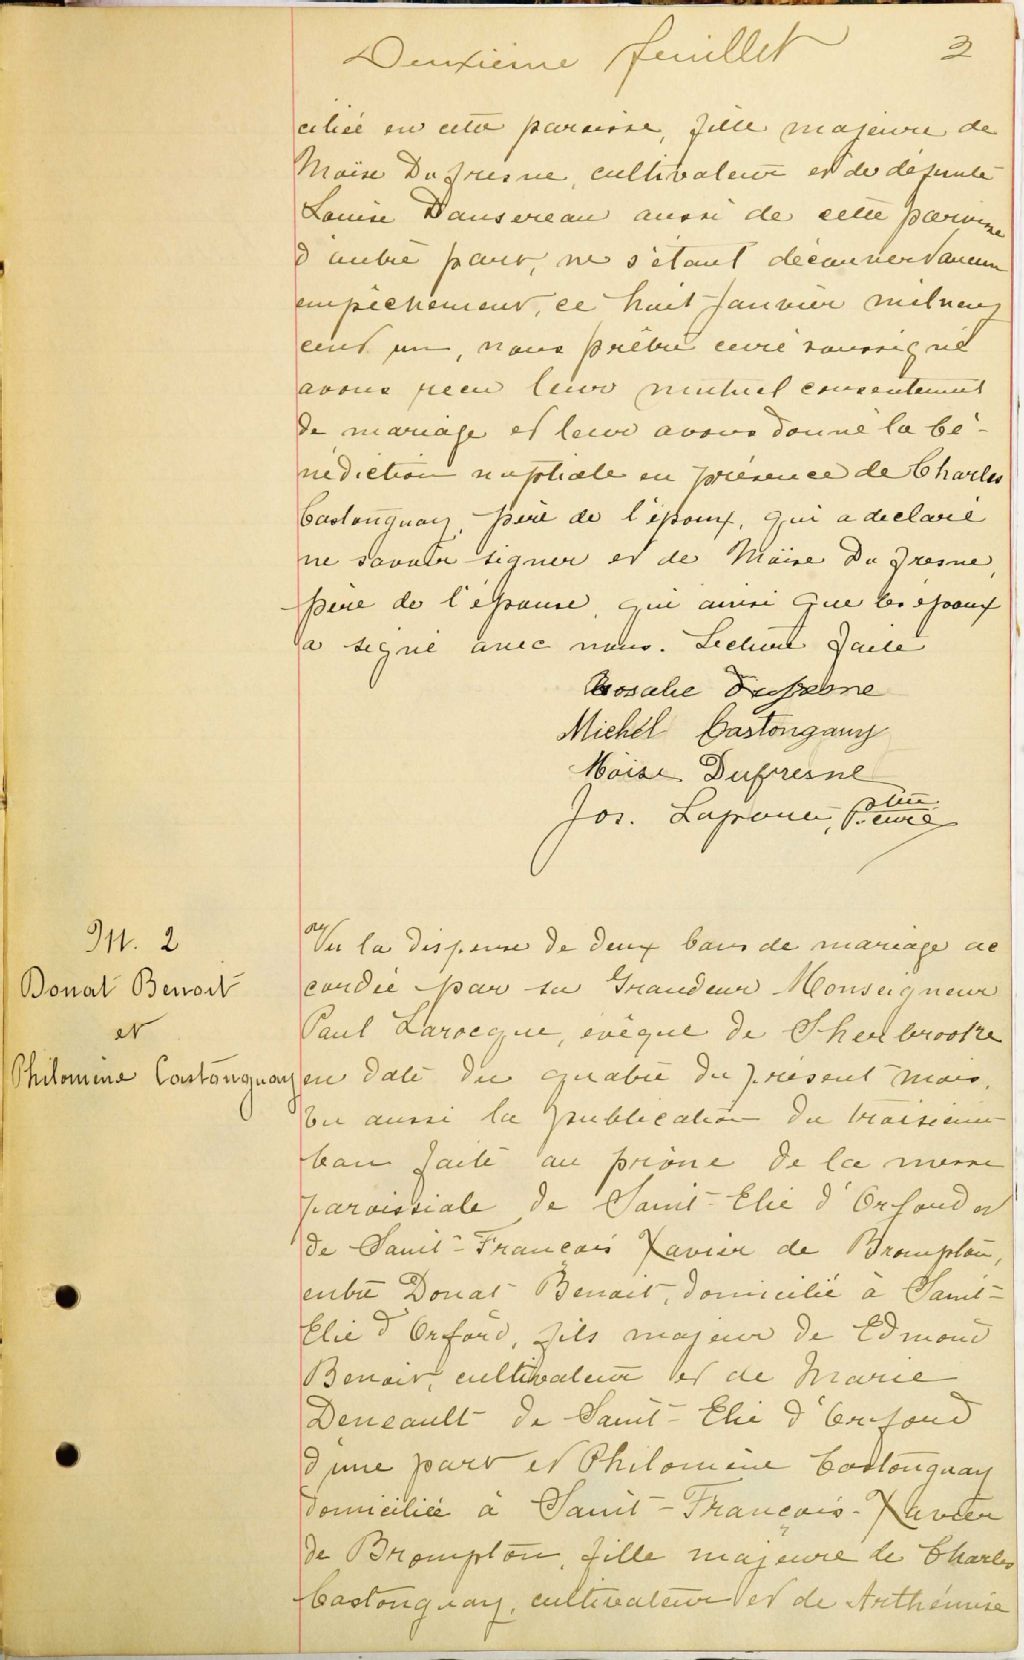 Deuxième feuillet 2
ciliée en cette paroisse, fille majeure de
Moïse Dufresne, cultivateur et de défunte
Louise Dansereau aussi de cette paroisse
d'autre part, ne s'étant découvert aucun
empêchement, ce huit Janvier mil neuf
cent un, nous prêtre curé soussigné
avons reçu leur mutuel consentement
de mariage et leur avons donné la bé-
nédiction nuptiale en présence de Charles
Castonguay, père de l'époux, qui a déclaré
ne savoir signer et de Moïse Dufresne,
père de l'épouse, qui ainsi que les époux
a signé avec nous. Lecture faite
Rosalie Dufresne
Michel Castonguay
Moïse Dufresne
Jos. Ptre curé
M. 2
Donat Benoit
et
Philomène Castonguay
Vu la dispense de deux bans de mariage ac
cordée par sa Grandeur Monseigneur
Paul Larocque, évêque de Sherbrooke
en date du quatre du présent mois,
vu aussi la publication du troisième
ban faite au prône de la messe
paroissiale de Saint-Elie d'Orford et
de Saint-François Xavier de Brompton,
entre Donat Benoit, domicilié à Saint-
Elie d'Orford, fils majeur de Edmond
Benoit, cultivateur et de Marie
Deneault de Saint-Elie d'Orford
d'une part et Philomène Castonguay
domiciliée à Saint-François-Xavier
de Brompton, fille majeure de Charles
Castonguay, cultivateur et de Arthémise